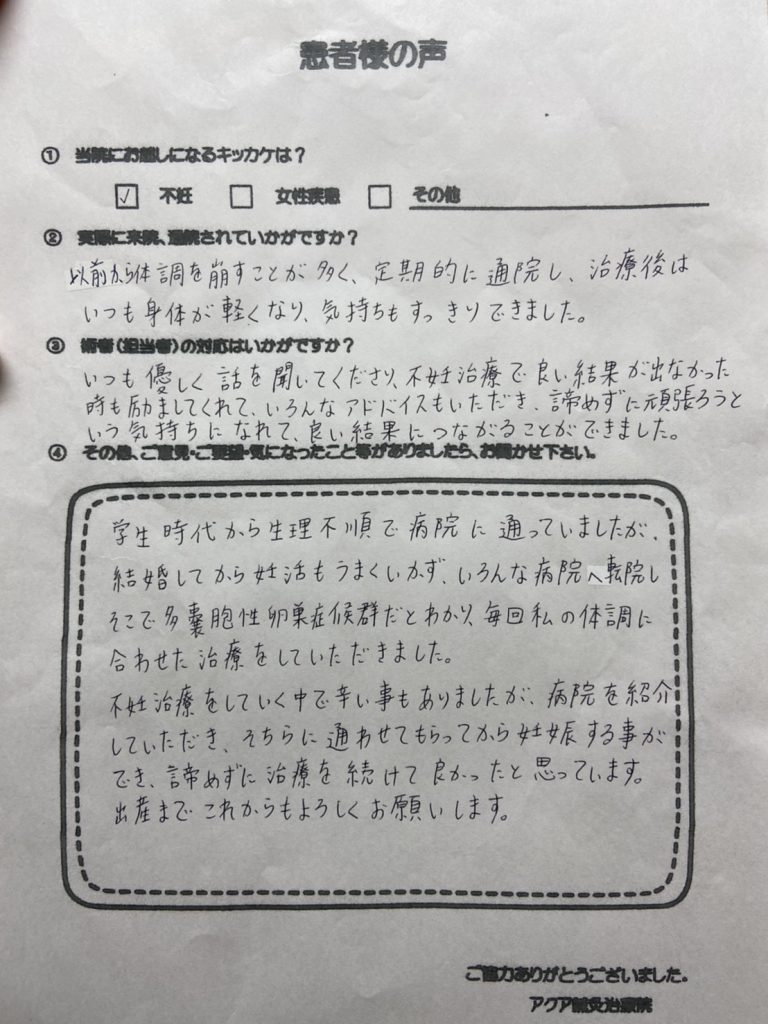 患者様の声
① 当院にお越しになるキッカケは？
☑ 不妊 □ 女性疾患 □ その他
② 実際に来院、通院されていかがですか？
以前から体調を崩すことが多く、定期的に通院し、治療後は
いつも身体が軽くなり、気持ちもすっきりできました。
③ 術者（担当者）の対応はいかがですか？
いつも優しく話を聞いてくださり、不妊治療で良い結果が出なかった
時も励ましてくれて、いろんなアドバイスもいただき、諦めずに頑張ろうと
いう気持ちになれて、良い結果につながることができました。
④ その他、ご意見・ご要望・気になったこと等がありましたら、お聞かせ下さい。
学生時代から生理不順で病院に通っていましたが、
結婚してから妊活もうまくいかず、いろんな病院へ転院し
そこで多嚢胞性卵巣症候群だとわかり、毎回私の体調に
合わせた治療をしていただきました。
不妊治療をしていく中で辛い事もありましたが、病院を紹介
していただき、そちらに通わせてもらってから妊娠する事が
でき、諦めずに治療を続けて良かったと思っています。
出産までこれからもよろしくお願いします。
ご協力ありがとうございました。
アクア鍼灸治療院